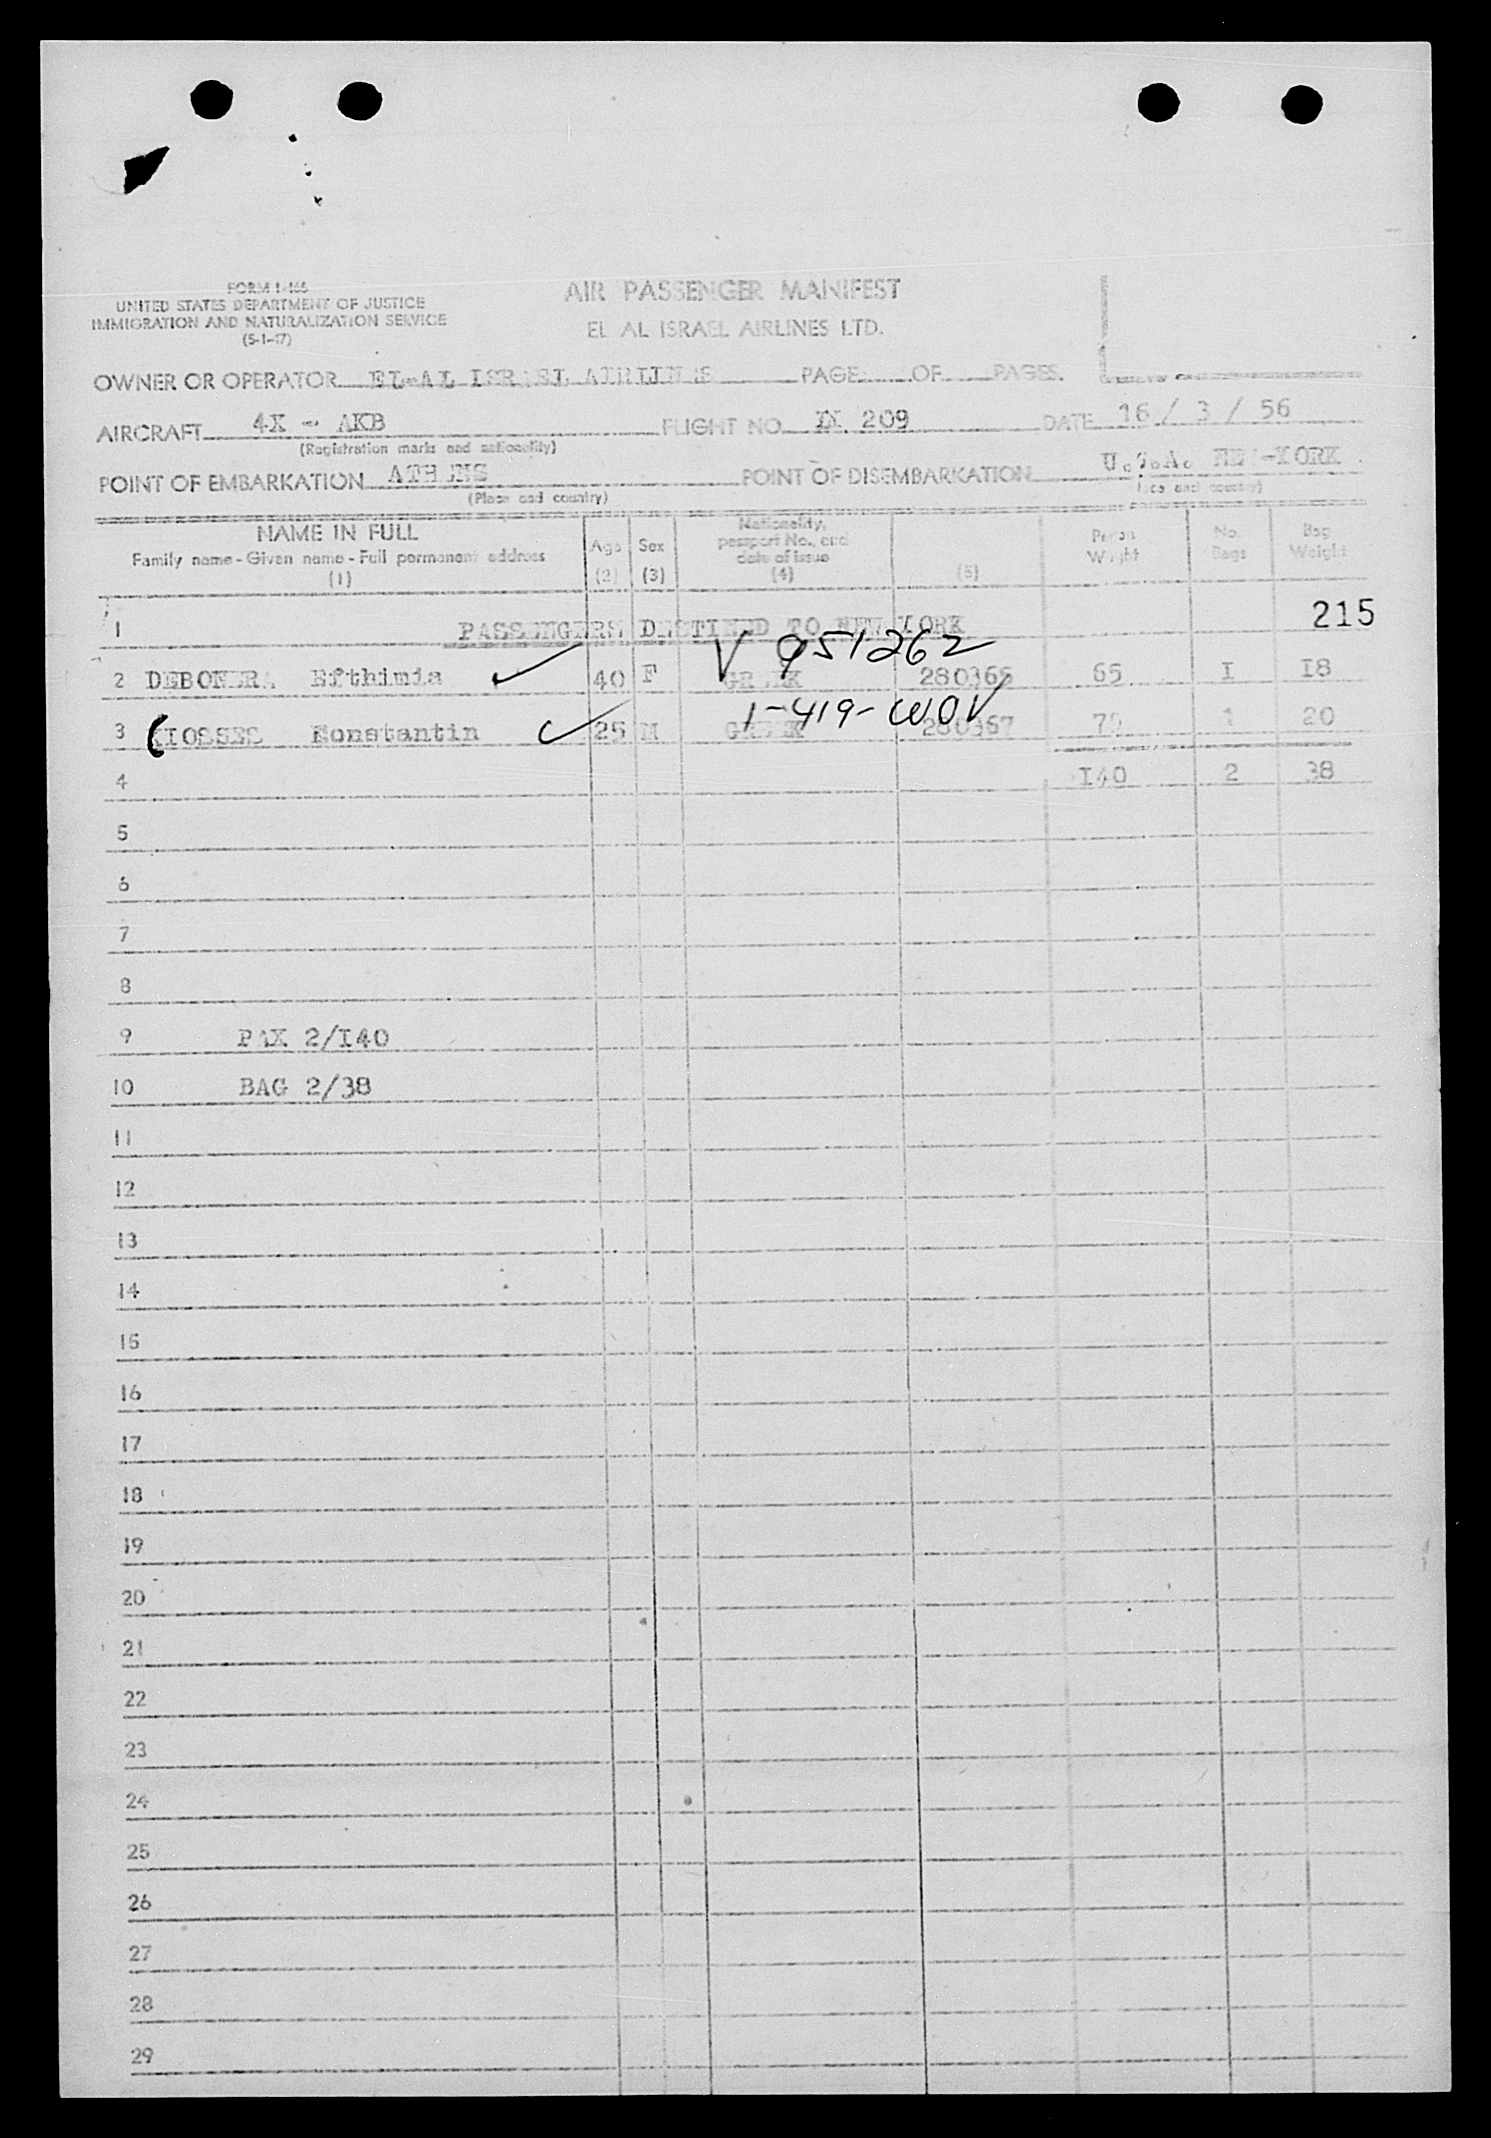 FORM I-466
UNITED STATES DEPARTMENT OF JUSTICE
IMMIGRATION AND NATURALIZATION SERVICE
(5-1-47)
AIR PASSENGER MANIFEST
EL AL ISRAEL AIRLINES LTD.
OWNER OR OPERATOR EL-AL ISRAEL AIRLINES PAGE OF PAGES
AIRCRAFT 4X - AKB FLIGHT NO. 209 DATE 16 / 3 / 56
(Registration marks and nationality)
POINT OF EMBARKATION ATHENS POINT OF DISEMBARKATION U.S.A. NEW-YORK
(Place and country) (Place and country)
NAME IN FULL
Family name - Given name - Full permanent address
(1)
Age
(2)
Sex
(3)
Nationality, passport No., and date of issue
(4)
(5)
Person Weight
No. Bags
Bag Weight
1 PASSENGERS DESTINED TO NEW YORK 215
V 951262
2 DEBONERA Efthimia 40 F GREEK 280366 65 I 18
1-419-WOV
3 KIOSSES Konstantin 25 M GREEK 280367 75 1 20
4 I40 2 38
5
6
7
8
9 PAX 2/I40
10 BAG 2/38
11
12
13
14
15
16
17
18
19
20
21
22
23
24
25
26
27
28
29